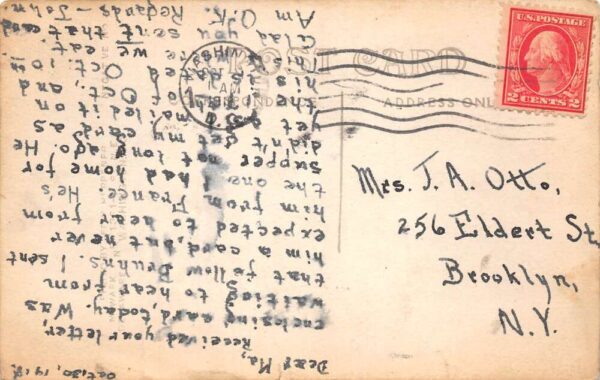 Oct, 30, 1918.
Dear Ma,
Received your letter,
enclosing card, today. Was
waiting to hear from
that fellow Bruhns. I sent
him a card, but never
expected to hear from
him from France. He's
the one I had home for
supper not long ago. He
didn't get my card as
yet. I mailed it on
the 1st of Oct, and
his is dated Oct. 10th.
This is where we eat.
Glad you sent that card
Am O.K.
Regards - John
POST CARD
ADDRESS ONLY
U.S. POSTAGE
2 CENTS 2
Mrs. J. A. Otto,
256 Eldert St,
Brooklyn,
N.Y.